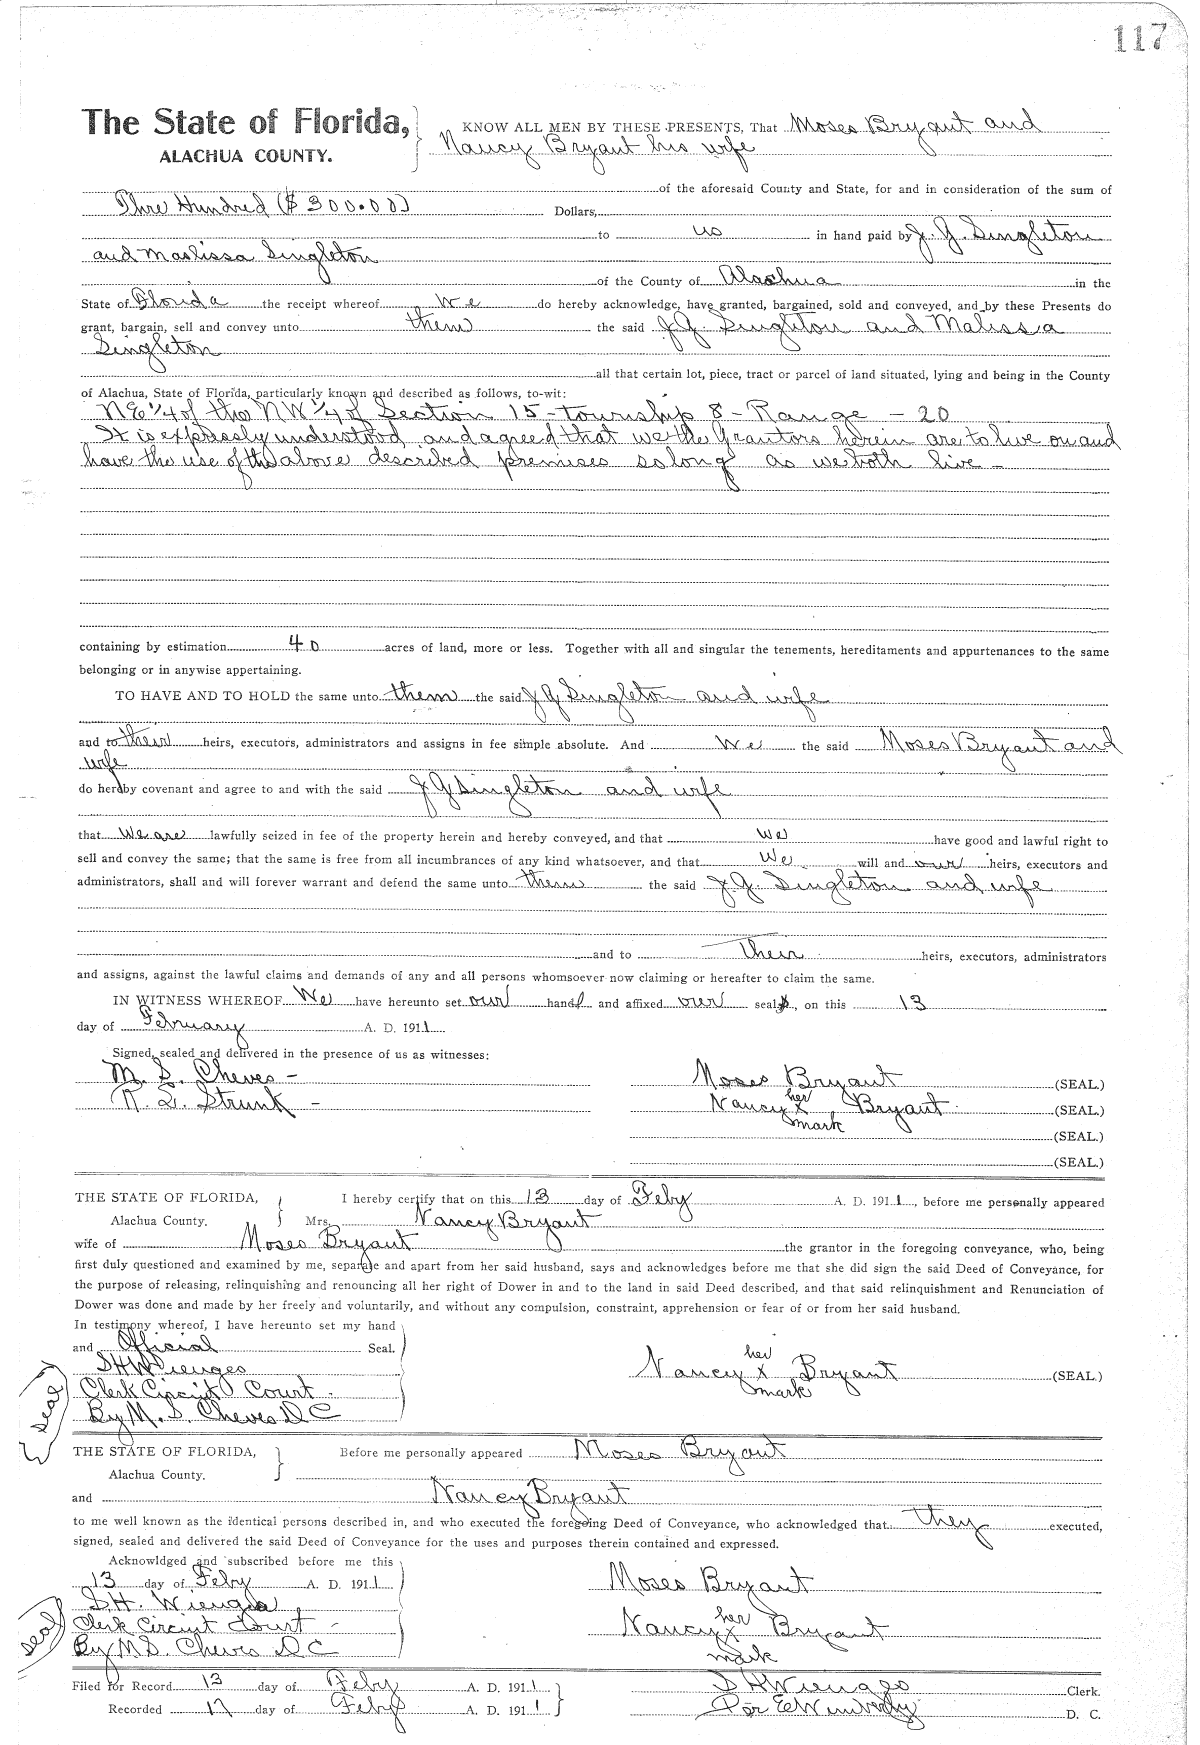 117
The State of Florida, KNOW ALL MEN BY THESE PRESENTS, That Moses Bryant and
ALACHUA COUNTY. Nancy Bryant his wife
of the aforesaid County and State, for and in consideration of the sum of
Thre Hundred ($300.00) Dollars,
to us in hand paid by J. G. Singleton
and Maslissa Singleton
of the County of Alachua in the
State of Florida the receipt whereof we do hereby acknowledge, have granted, bargained, sold and conveyed, and by these Presents do
grant, bargain, sell and convey unto them the said J. G. Singleton and Malissa
Singleton
all that certain lot, piece, tract or parcel of land situated, lying and being in the County
of Alachua, State of Florida, particularly known and described as follows, to-wit:
NE 1/4 of the NW 1/4 of Section 15 - township 8 - Range - 20
It is expressly understood and agreed that we the Grantors herein are to live on and
have the use of the above described premises so long as we both live -
containing by estimation 40 acres of land, more or less. Together with all and singular the tenements, hereditaments and appurtenances to the same
belonging or in anywise appertaining.
TO HAVE AND TO HOLD the same unto them the said J G Singleton and wife
and to their heirs, executors, administrators and assigns in fee simple absolute. And we the said Moses Bryant and
wife
do hereby covenant and agree to and with the said J G Singleton and wife
that we are lawfully seized in fee of the property herein and hereby conveyed, and that we have good and lawful right to
sell and convey the same; that the same is free from all incumbrances of any kind whatsoever, and that we will and our heirs, executors and
administrators, shall and will forever warrant and defend the same unto them the said J. G. Singleton and wife
and to their heirs, executors, administrators
and assigns, against the lawful claims and demands of any and all persons whomsoever now claiming or hereafter to claim the same.
IN WITNESS WHEREOF We have hereunto set our hand and affixed our seals, on this 13
day of February A. D. 1911
Signed, sealed and delivered in the presence of us as witnesses:
M. S. Cheves - Moses Bryant (SEAL.)
R. E. Strunk - Nancy her x mark Bryant (SEAL.)
(SEAL.)
(SEAL.)
THE STATE OF FLORIDA, I hereby certify that on this 13 day of Feby A. D. 1911, before me personally appeared
Alachua County. Mrs. Nancy Bryant
wife of Moses Bryant the grantor in the foregoing conveyance, who, being
first duly questioned and examined by me, separate and apart from her said husband, says and acknowledges before me that she did sign the said Deed of Conveyance, for
the purpose of releasing, relinquishing and renouncing all her right of Dower in and to the land in said Deed described, and that said relinquishment and Renunciation of
Dower was done and made by her freely and voluntarily, and without any compulsion, constraint, apprehension or fear of or from her said husband.
In testimony whereof, I have hereunto set my hand
and Official Seal.
S H Wienges Nancy her x mark Bryant (SEAL.)
(Seal) Clerk Circuit Court.
By M. S. Cheves D C
THE STATE OF FLORIDA, Before me personally appeared Moses Bryant
Alachua County.
and Nancy Bryant
to me well known as the identical persons described in, and who executed the foregoing Deed of Conveyance, who acknowledged that they executed,
signed, sealed and delivered the said Deed of Conveyance for the uses and purposes therein contained and expressed.
Acknowldged and subscribed before me this
13 day of Feby A. D. 1911 Moses Bryant
S. H. Wienges
(Seal) Clerk Circuit Court - Nancy her x mark Bryant
By M S. Cheves D C
Filed for Record 13 day of Feby A. D. 1911 S H Wienges Clerk.
Recorded 17 day of Feby A. D. 1911 Per E Wimberly D. C.